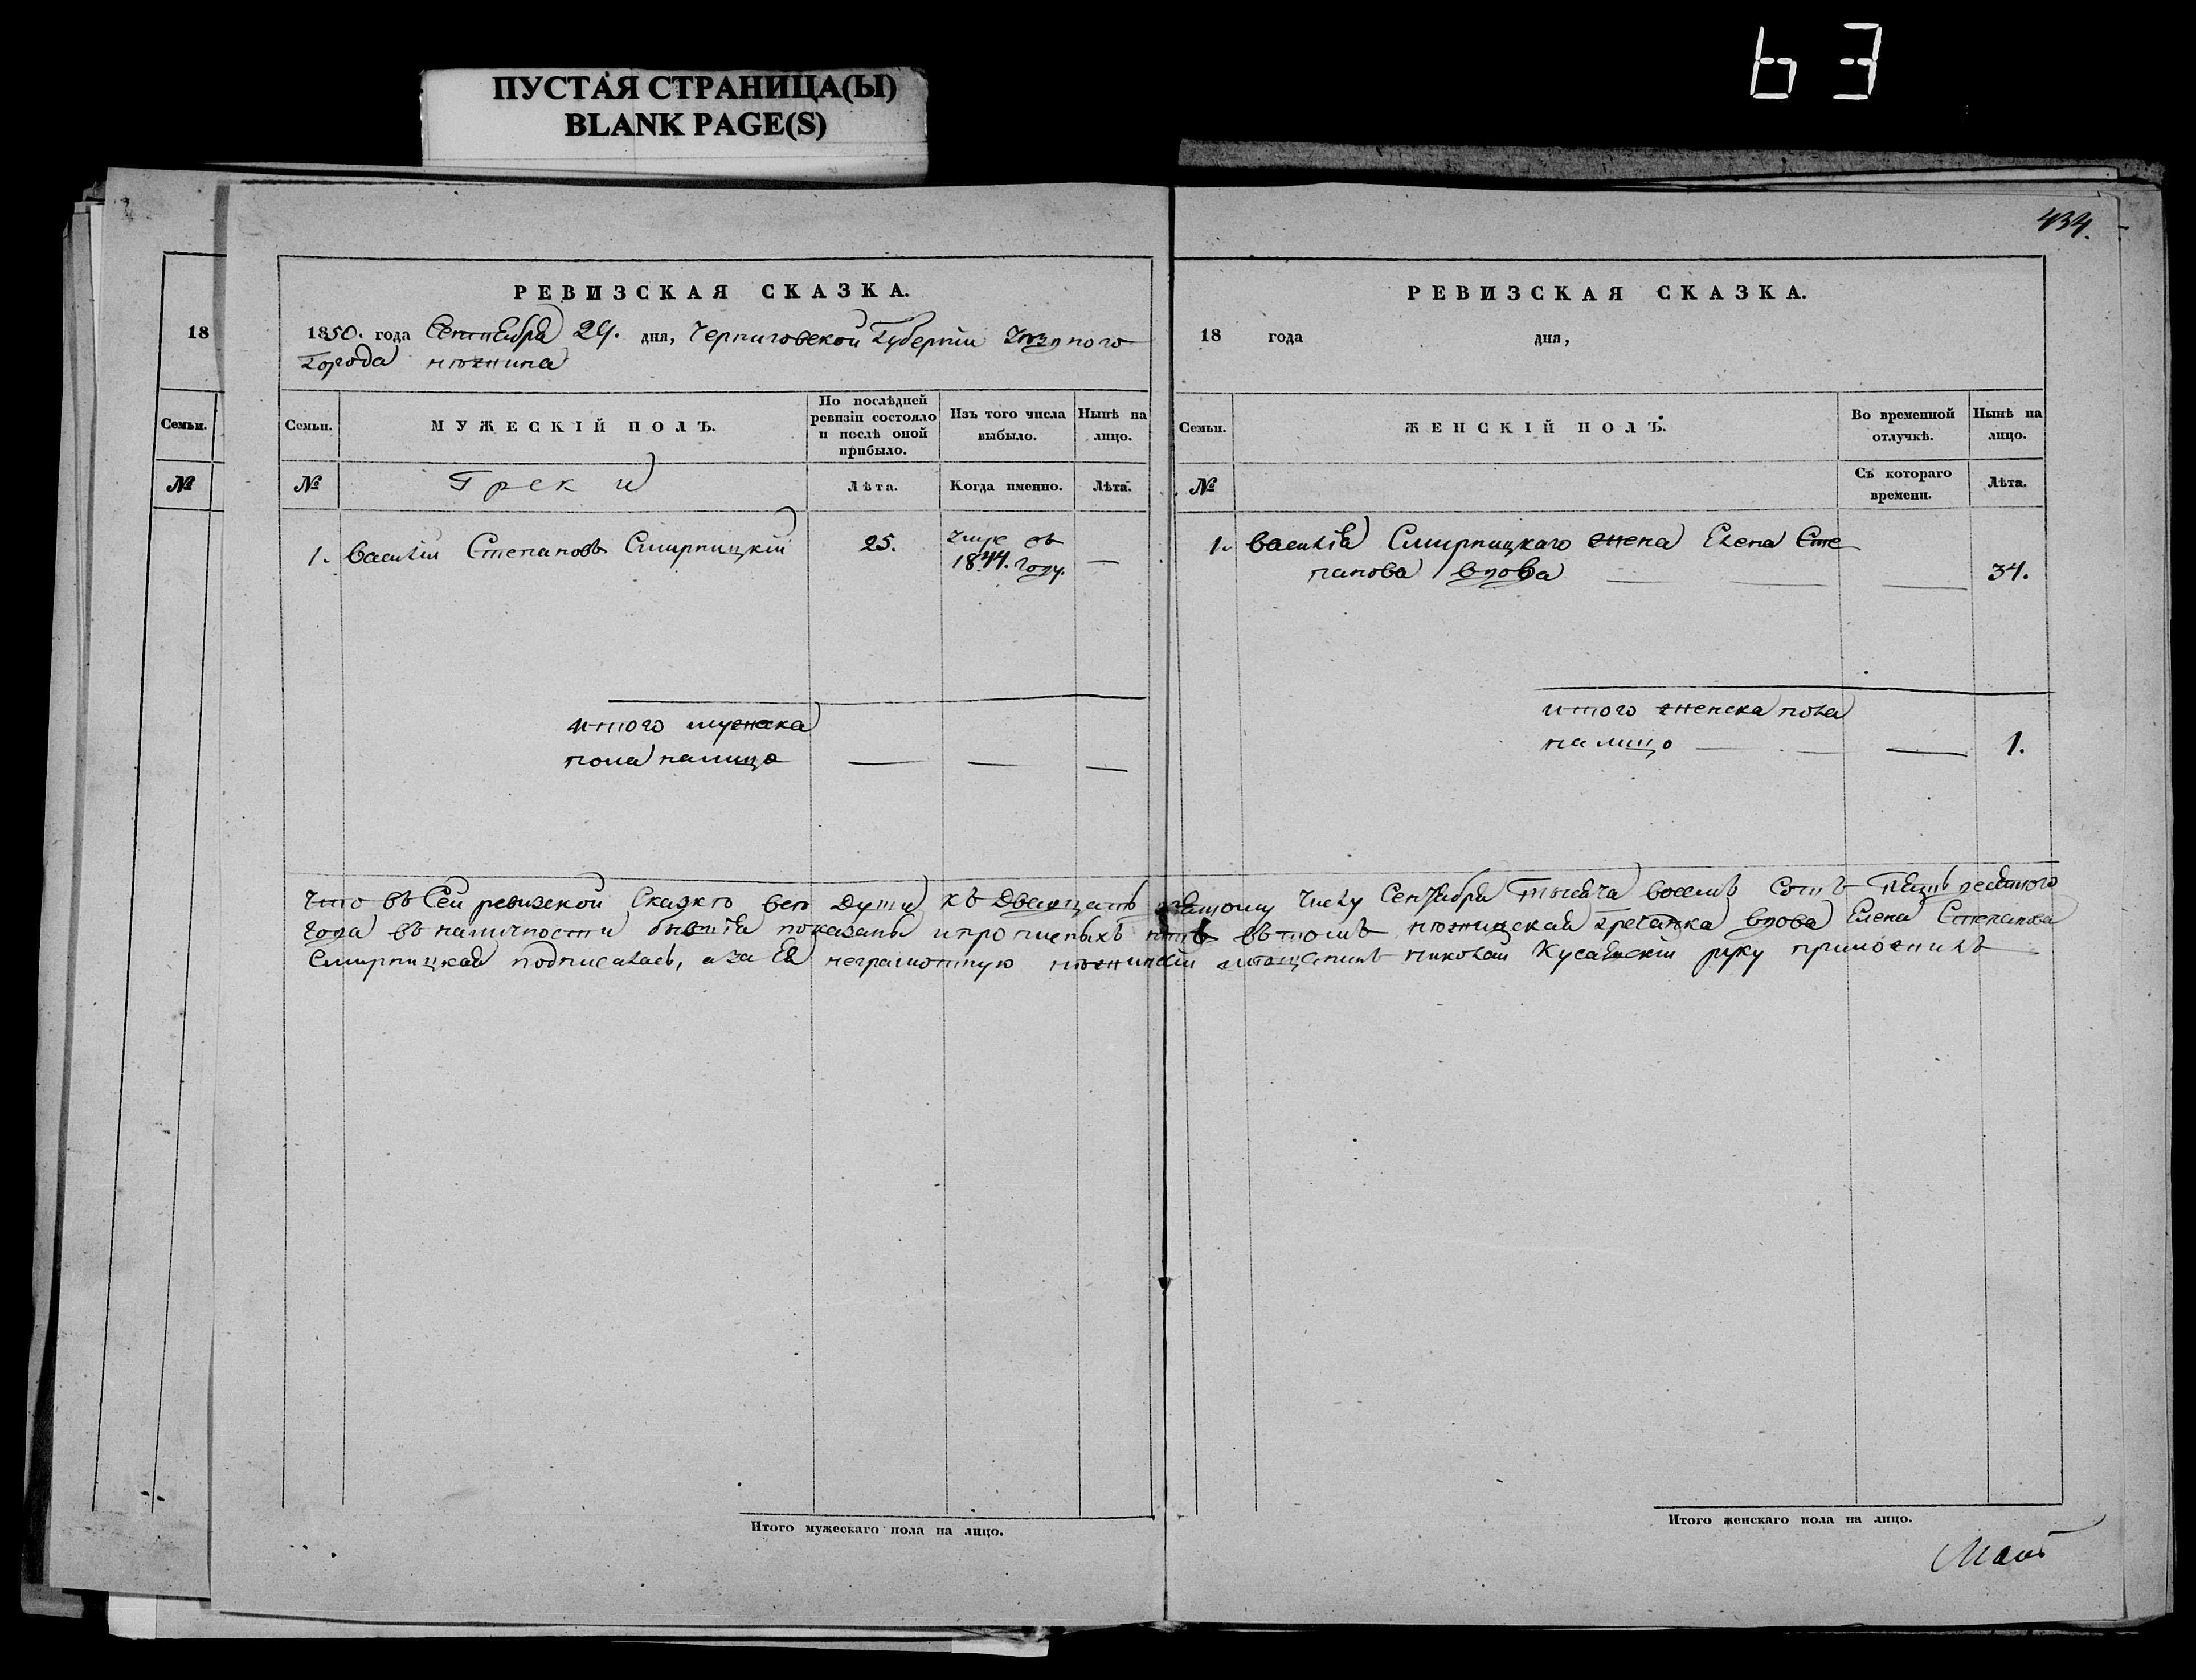 ПУСТАЯ СТРАНИЦА(Ы)
BLANK PAGE(S)
63
434.
18
Семьи.
№
РЕВИЗСКАЯ СКАЗКА.
1850. года Сентября 29. дня, Черниговской Губерніи Уѣзднаго
Города Нѣжина
Семьи.
МУЖЕСКІЙ ПОЛЪ.
По послѣдней ревизіи состояло и послѣ оной прибыло.
Изъ того числа выбыло.
Нынѣ на лицо.
№
Греки
Лѣта.
Когда именно.
Лѣта.
1. Василій Степановъ Смирницкій 25. умре въ 1844. году. —
итого мужеска
пола налицо — — —
РЕВИЗСКАЯ СКАЗКА.
18 года дня,
Семьи.
ЖЕНСКІЙ ПОЛЪ.
Во временной отлучкѣ.
Нынѣ на лицо.
№
Съ котораго времени.
Лѣта.
1. Василія Смирницкаго жена Елена Сте
панова вдова — — — 34.
итого женска пола
на лицо — — — 1.
Что въ Сей ревизской Сказкѣ всѣ Души къ Двадцать числу Сентября Тысяча восемь Сотъ Пять десятого
года въ наличности бывшія показаны и прописныхъ нѣтъ въ томъ нѣжинская гречанка вдова Елена Степанова
Смирницкая подписалась, а за Ея неграмотную нѣжинскій мѣщанинъ Николай руку приложилъ
Итого мужескаго пола на лицо.
Итого женскаго пола на лицо.